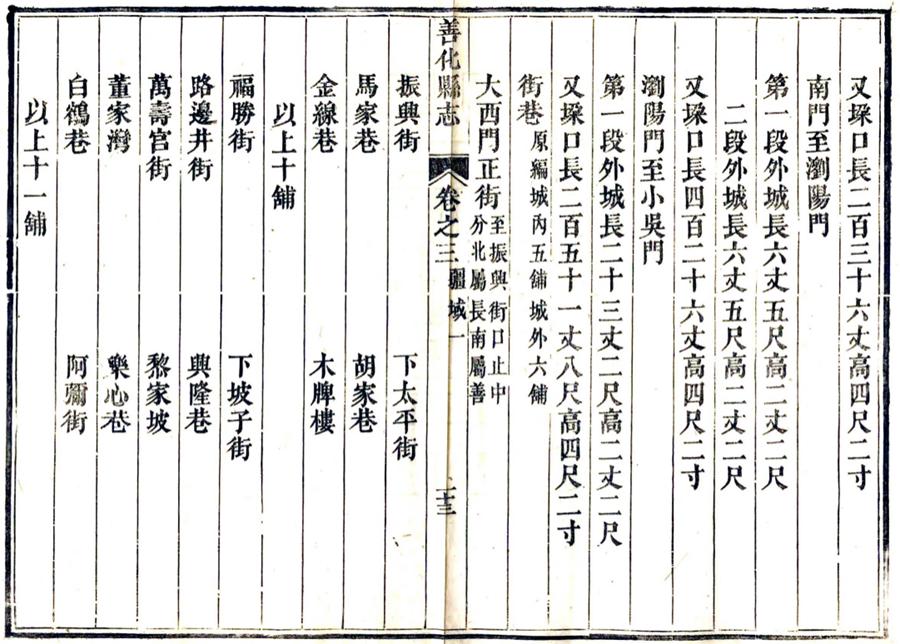 又垜口長二百三十六丈高四尺二寸
南門至瀏陽門
第一段外城長六丈五尺高二丈二尺
二段外城長六丈五尺高二丈二尺
又垜口長四百二十六丈高四尺二寸
瀏陽門至小吳門
第一段外城長二十三丈二尺高二丈二尺
又垜口長二百五十一丈八尺高四尺二寸
街巷 原編城內五舖城外六舖
大西門正街 至振興街口止中
分北屬長南屬善
善化縣志 卷之三 疆域一 二十三
振興街 下太平街
馬家巷 胡家巷
金線巷 木牌樓
以上十舖
福勝街 下坡子街
路邊井街 興隆巷
萬壽宮街 黎家坡
董家灣 樂心巷
白鶴巷 阿彌街
以上十一舖